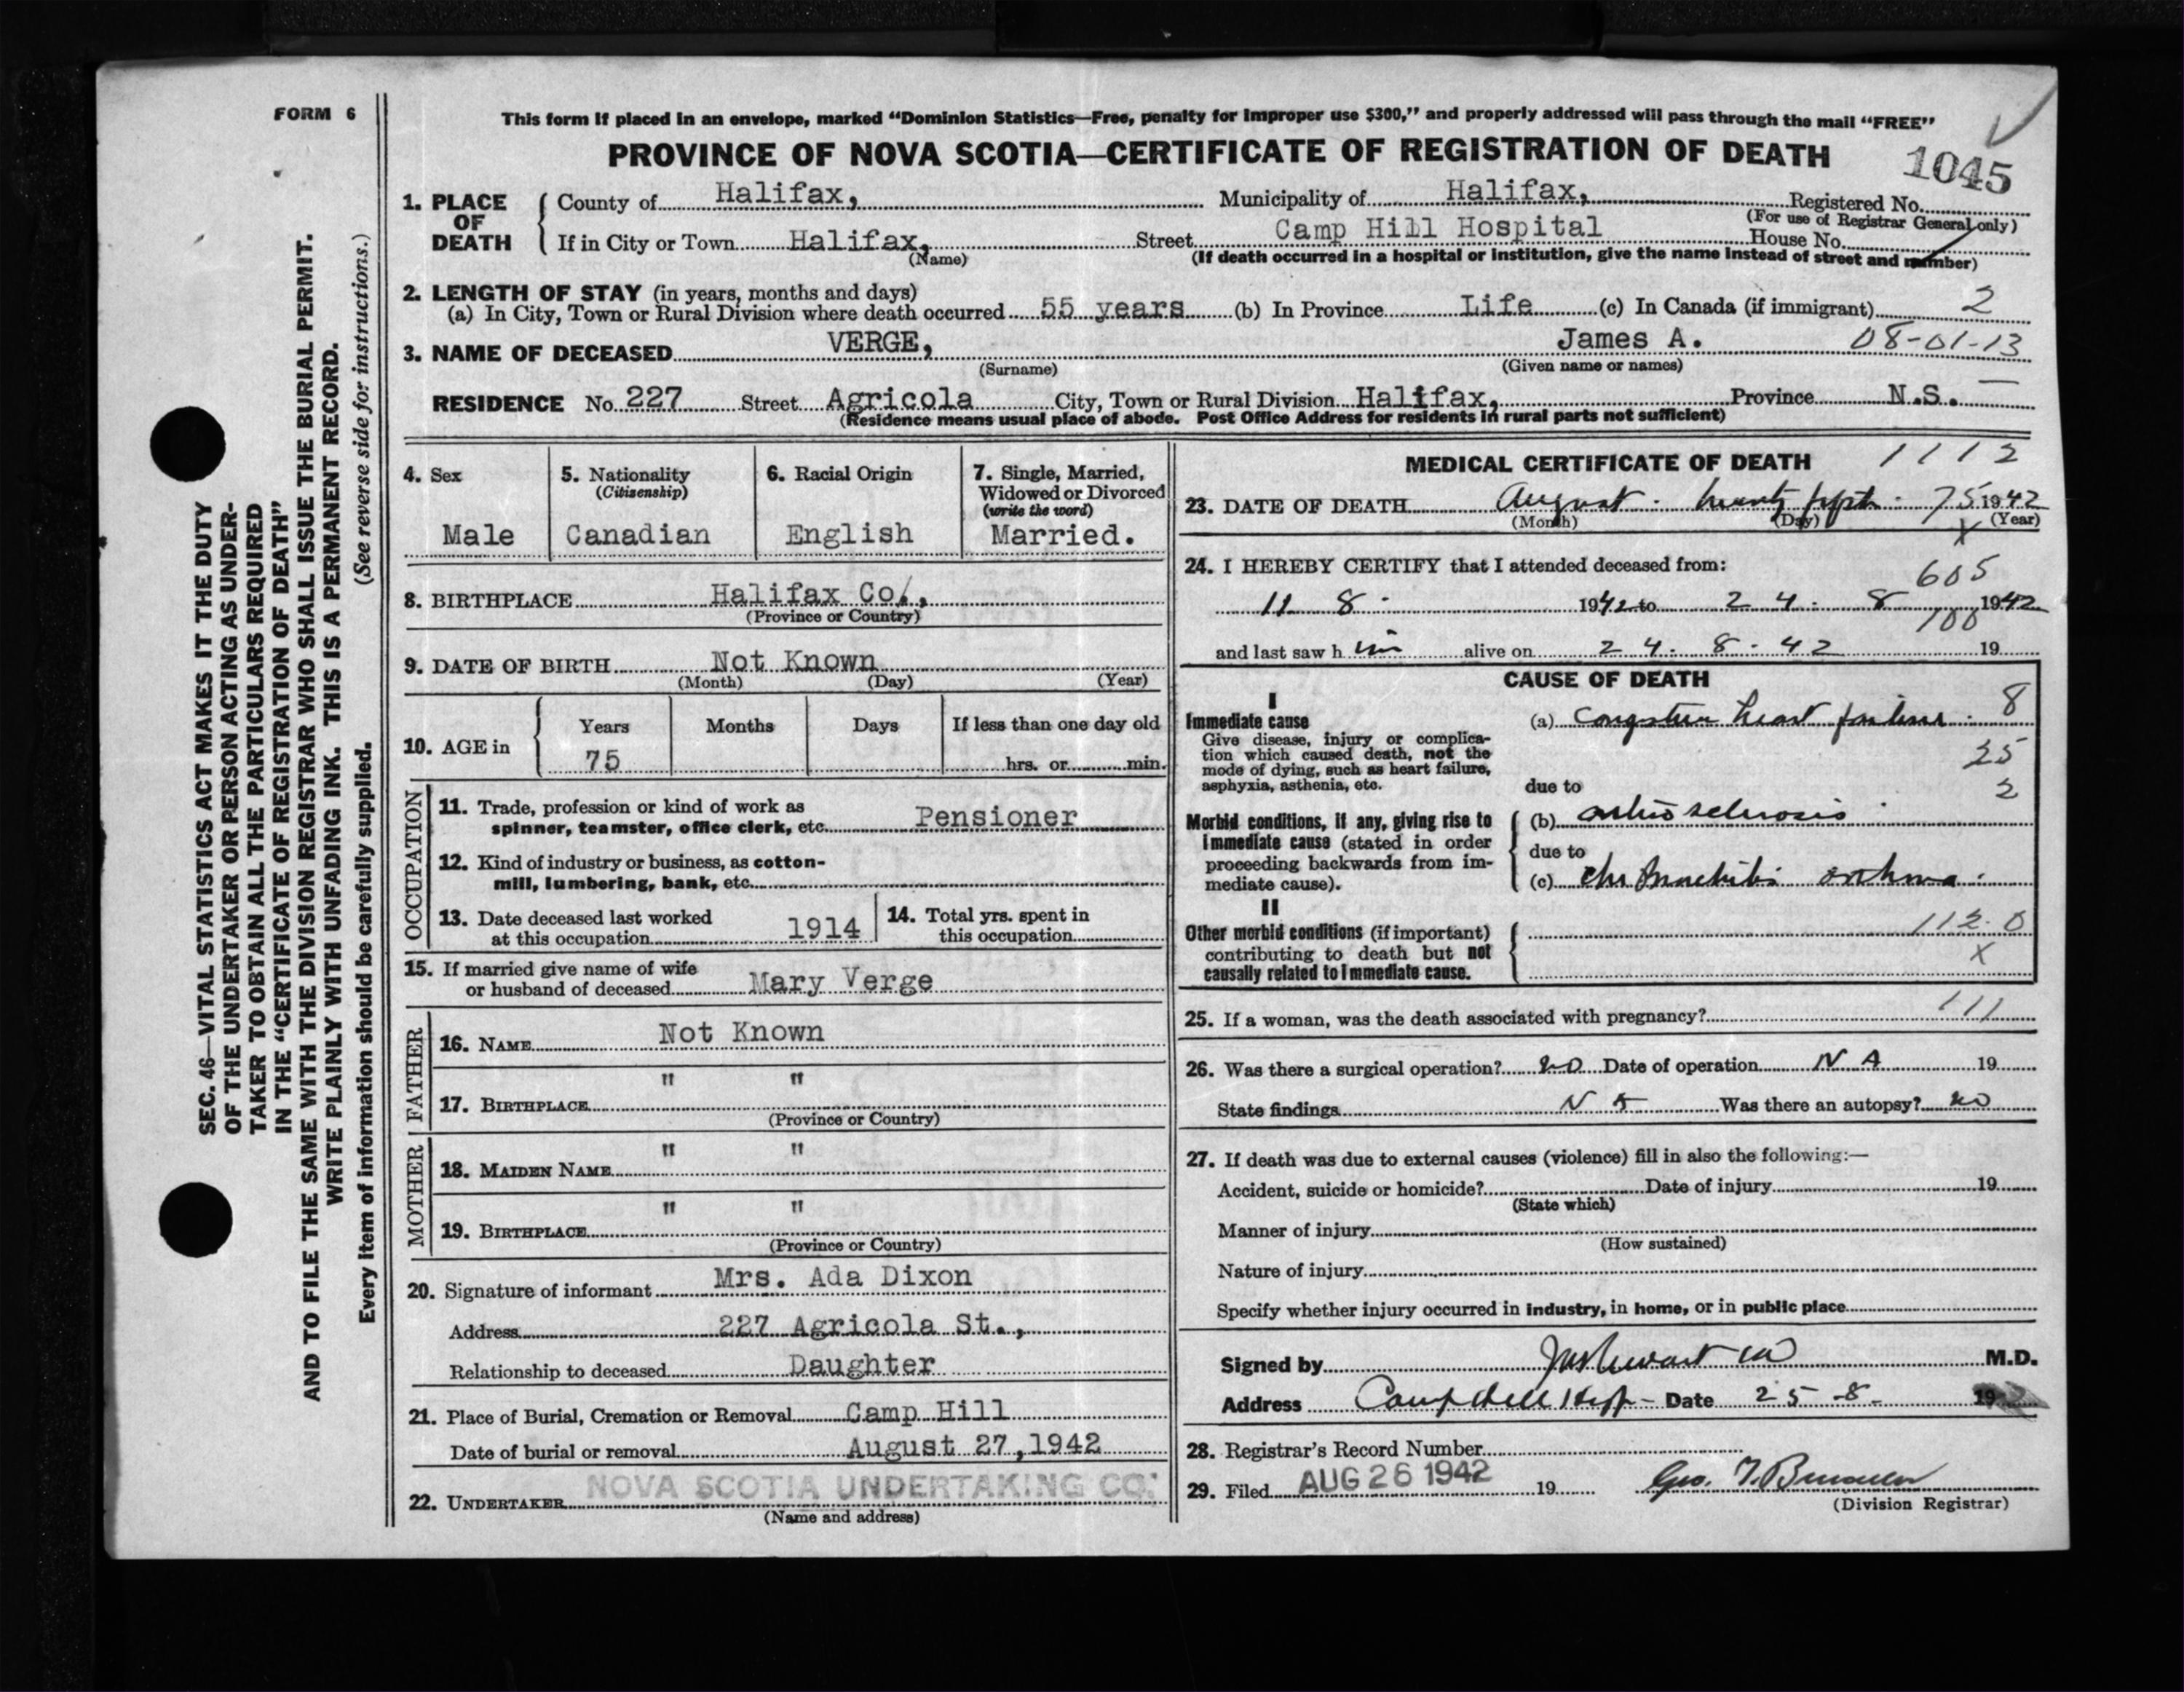 FORM 6
SEC. 46—VITAL STATISTICS ACT MAKES IT THE DUTY
OF THE UNDERTAKER OR PERSON ACTING AS UNDER-
TAKER TO OBTAIN ALL THE PARTICULARS REQUIRED
IN THE "CERTIFICATE OF REGISTRATION OF DEATH"
AND TO FILE THE SAME WITH THE DIVISION REGISTRAR WHO SHALL ISSUE THE BURIAL PERMIT.
WRITE PLAINLY WITH UNFADING INK. THIS IS A PERMANENT RECORD.
Every item of information should be carefully supplied. (See reverse side for instructions.)
This form if placed in an envelope, marked "Dominion Statistics—Free, penalty for improper use $300," and properly addressed will pass through the mail "FREE"
PROVINCE OF NOVA SCOTIA—CERTIFICATE OF REGISTRATION OF DEATH 1045
1. PLACE OF DEATH County of Halifax, Municipality of Halifax, Registered No.
(For use of Registrar General only)
If in City or Town Halifax, Street Camp Hill Hospital House No.
(Name) (If death occurred in a hospital or institution, give the name instead of street and number)
2. LENGTH OF STAY (in years, months and days)
(a) In City, Town or Rural Division where death occurred 55 years (b) In Province Life (c) In Canada (if immigrant) 2
3. NAME OF DECEASED VERGE, James A. 08-01-13
(Surname) (Given name or names)
RESIDENCE No. 227 Street Agricola City, Town or Rural Division Halifax, Province N.S.
(Residence means usual place of abode. Post Office Address for residents in rural parts not sufficient)
4. Sex
Male
5. Nationality
(Citizenship)
Canadian
6. Racial Origin
English
7. Single, Married,
Widowed or Divorced
(write the word)
Married.
8. BIRTHPLACE Halifax Co.,
(Province or Country)
9. DATE OF BIRTH Not Known
(Month) (Day) (Year)
10. AGE in Years Months Days If less than one day old
75 hrs. or min.
OCCUPATION
11. Trade, profession or kind of work as
spinner, teamster, office clerk, etc. Pensioner
12. Kind of industry or business, as cotton-
mill, lumbering, bank, etc.
13. Date deceased last worked
at this occupation 1914
14. Total yrs. spent in
this occupation
15. If married give name of wife
or husband of deceased Mary Verge
FATHER
16. NAME Not Known
" "
17. BIRTHPLACE
(Province or Country)
MOTHER
" "
18. MAIDEN NAME
" "
19. BIRTHPLACE
(Province or Country)
20. Signature of informant Mrs. Ada Dixon
Address 227 Agricola St.,
Relationship to deceased Daughter
21. Place of Burial, Cremation or Removal Camp Hill
Date of burial or removal August 27, 1942
22. UNDERTAKER NOVA SCOTIA UNDERTAKING CO.
(Name and address)
MEDICAL CERTIFICATE OF DEATH 1112
23. DATE OF DEATH August twenty fifth 75 1942
(Month) (Day) (Year)
X
24. I HEREBY CERTIFY that I attended deceased from:
605
11 8. 1942 to 24. 8 1942
100
and last saw him alive on 24. 8. 42 19
CAUSE OF DEATH
I
Immediate cause
Give disease, injury or complica-
tion which caused death, not the
mode of dying, such as heart failure,
asphyxia, asthenia, etc.
(a) Congestive heart failure. 8
25
due to 2
Morbid conditions, if any, giving rise to
immediate cause (stated in order
proceeding backwards from im-
mediate cause).
(b) arterio sclerosis
due to
(c) chr bronchitis asthma.
II
Other morbid conditions (if important)
contributing to death but not
causally related to immediate cause.
112.0
X
111
25. If a woman, was the death associated with pregnancy?
26. Was there a surgical operation? no Date of operation N A 19
State findings N A Was there an autopsy? no
27. If death was due to external causes (violence) fill in also the following:—
Accident, suicide or homicide? Date of injury 19
(State which)
Manner of injury
(How sustained)
Nature of injury
Specify whether injury occurred in industry, in home, or in public place
Signed by M.D.
Address Camp Hill Hosp - Date 25-8- 19
28. Registrar's Record Number
29. Filed AUG 26 1942 19
(Division Registrar)